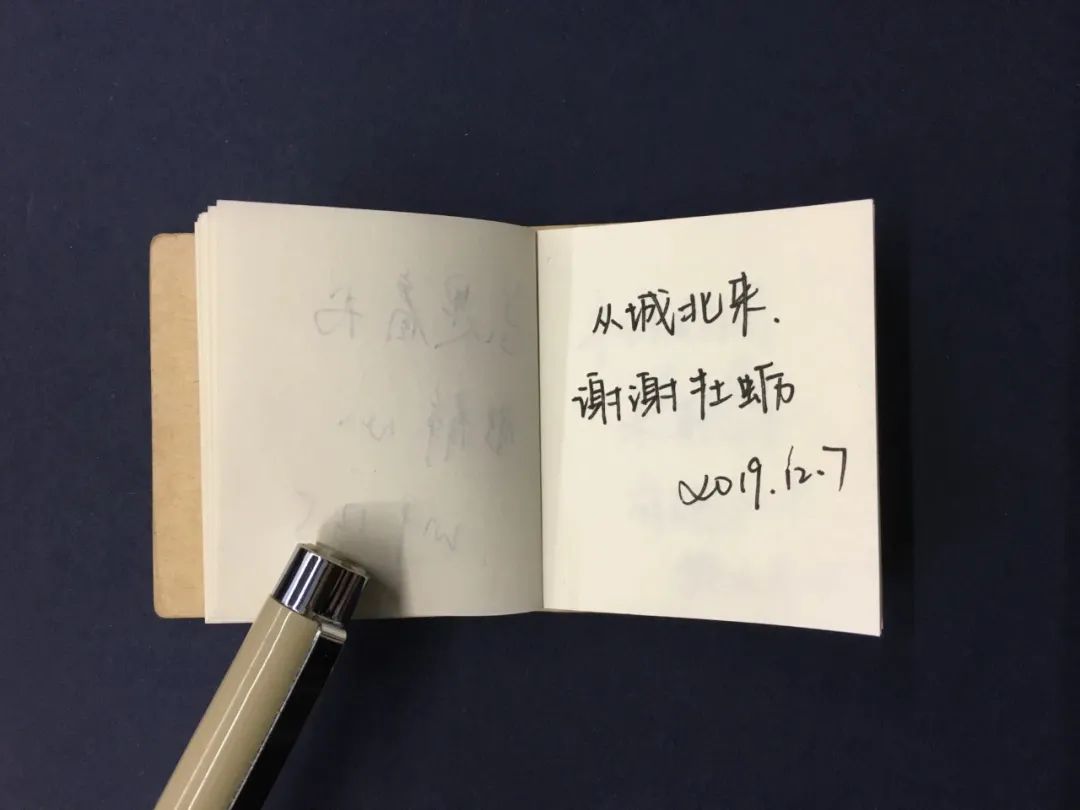 从城北来.
谢谢牡蛎
2019.12.7